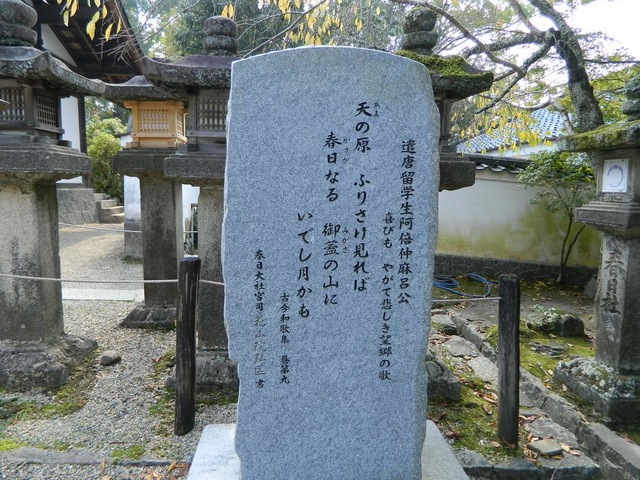 遣唐留学生阿倍仲麻呂公
喜びも やがて悲しき望郷の歌
天の原 ふりさけ見れば
あま
春日なる 御蓋の山に
かすが みかさ
いでし月かも
古今和歌集 巻第九
春日大社宮司 花山院弘匡 書
春日社